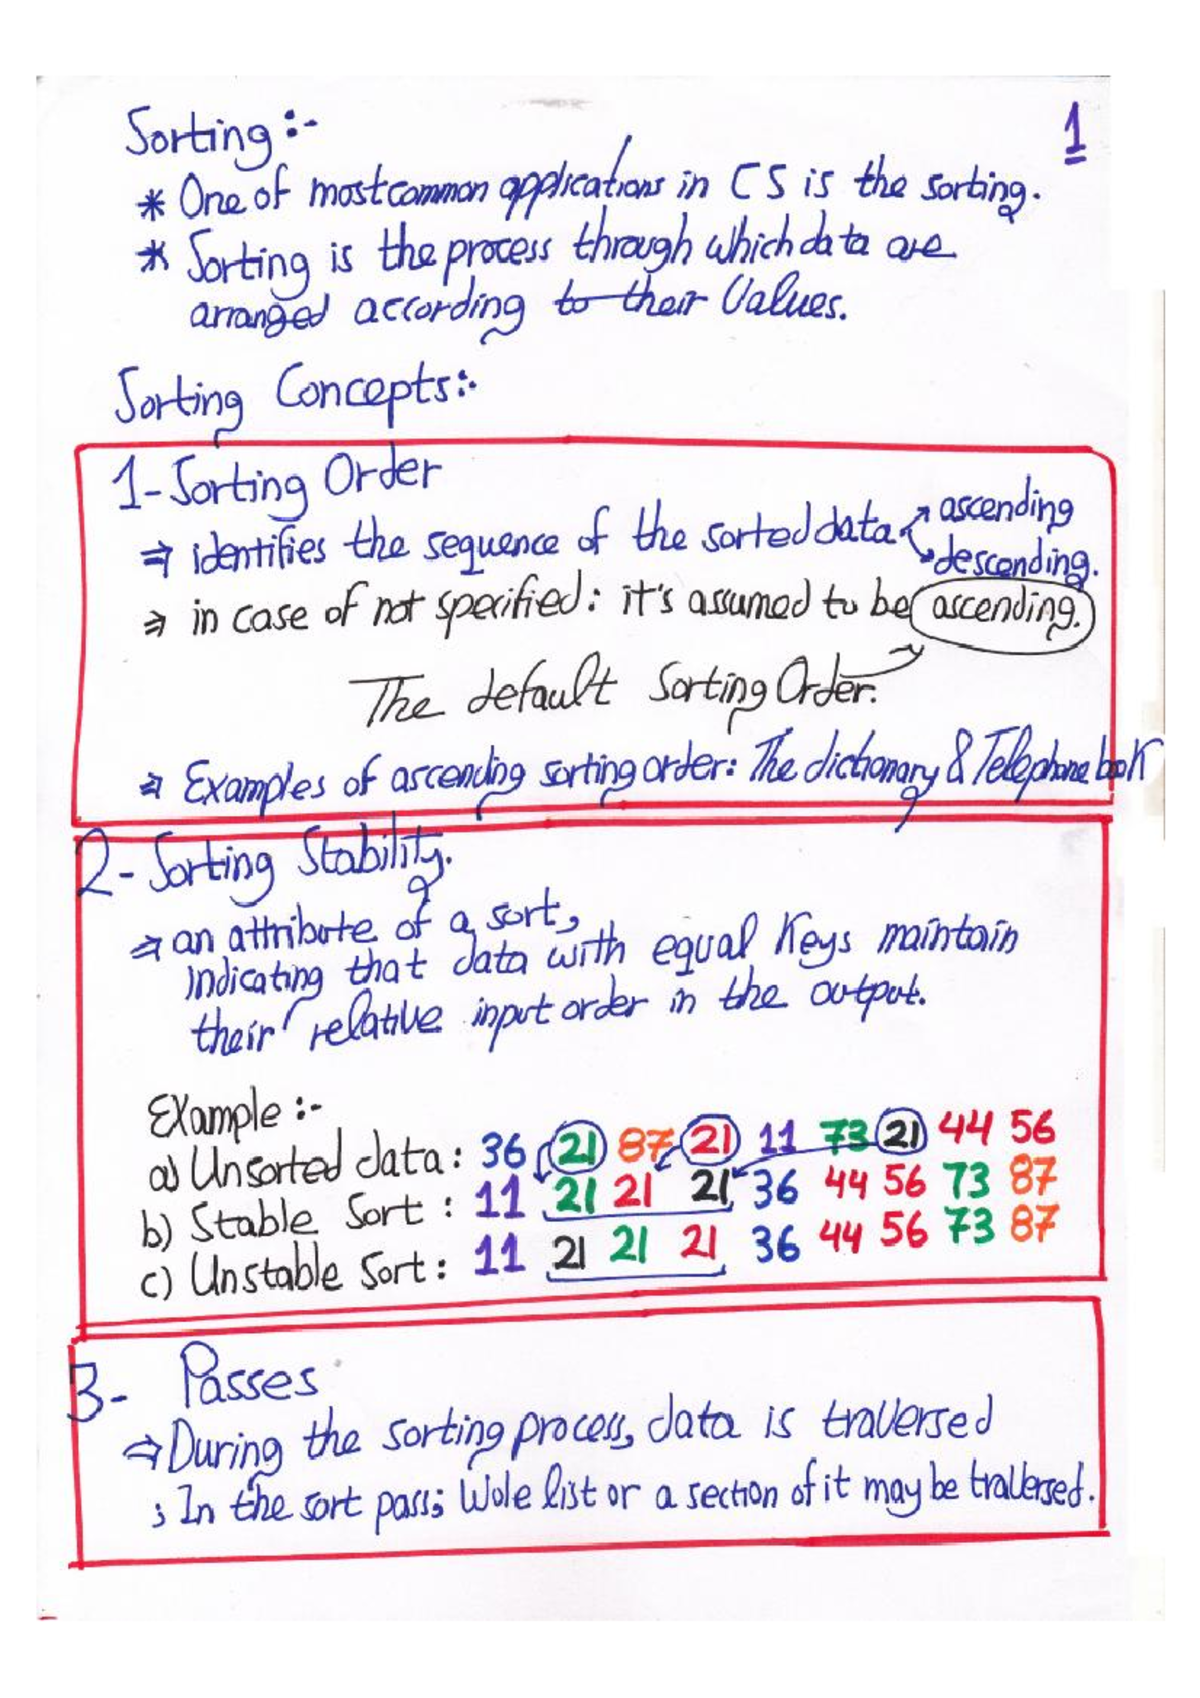 Sorting :-
1
* One of most common applications in CS is the sorting.
* Sorting is the process through which data are
arranged according to their Values.
Sorting Concepts:-
1- Sorting Order
⇒ identifies the sequence of the sorted data ascending
descending.
⇒ in case of not specified: it's assumed to be ascending.
The default Sorting Order.
⇒ Examples of ascending sorting order: The dictionary & Telephone book
2- Sorting Stability.
⇒ an attribute of a sort,
indicating that data with equal Keys maintain
their relative input order in the output.
Example :-
a) Unsorted data: 36 21 87 21 11 73 21 44 56
b) Stable Sort : 11 21 21 21 36 44 56 73 87
c) Unstable Sort: 11 21 21 21 36 44 56 73 87
3- Passes
⇒ During the sorting process, data is traversed
; In the sort pass; Wole list or a section of it may be traversed.